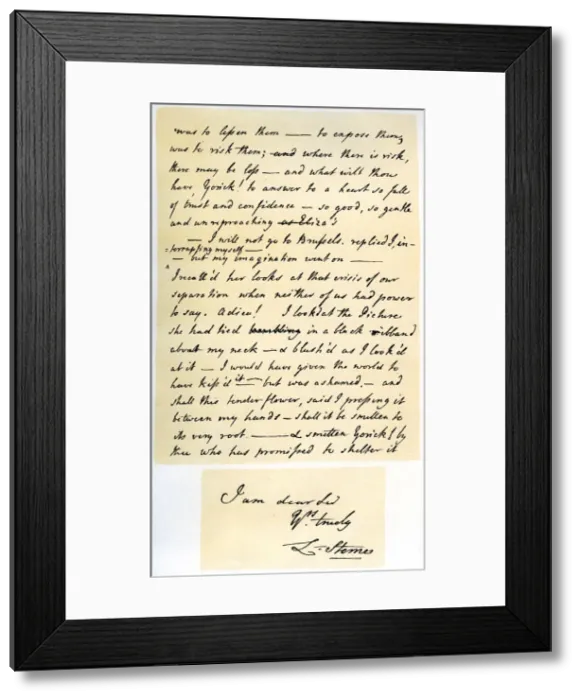 was to lessen them —— to expose them,
was to risk them; and where there is risk,
there may be loss — and what wilt thou
have, Yorick! to answer to a heart so full
of trust and confidence — so good, so gentle
and unreproaching as Eliza's
— I will not go to Brussels. replied I, in-
=terrupting myself —
— but my imagination went on ——
I recall'd her looks at that crisis of our
separation when neither of us had power
to say. Adieu! I look'd at the Picture
she had tied in a black ribband
about my neck — & blush'd as I look'd
at it — I would have given the world to
have kiss'd it — but was ashamed. — and
shall this tender flower, said I pressing it
between my hands — shall it be smitten to
its very root. —— & smitten Yorick! by
thee who has promissed to shelter it
I am dear Sir
Yrs. truely
L. Sterne